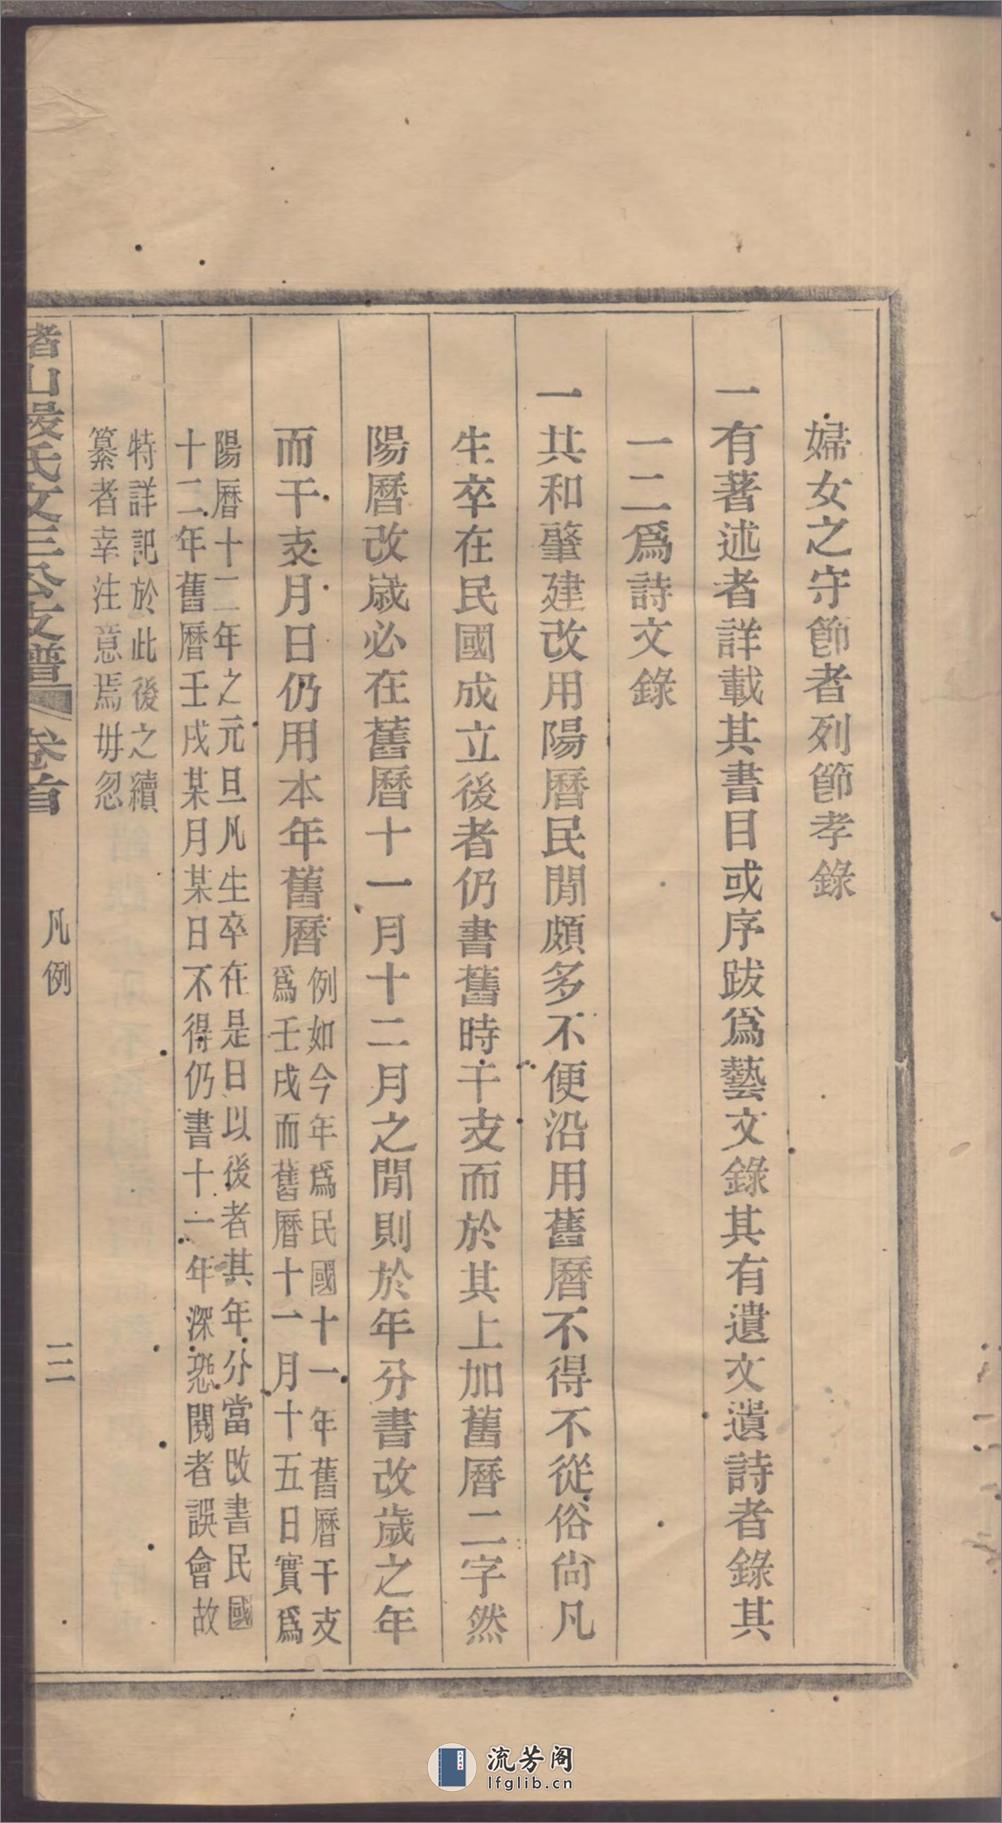 婦女之守節者列節孝錄
一有著述者詳載其書目或序跋爲藝文錄其有遺文遺詩者錄其
一二爲詩文錄
一共和肇建改用陽曆民閒頗多不便沿用舊曆不得不從俗尙凡
生卒在民國成立後者仍書舊時干支而於其上加舊曆二字然
陽曆改歲必在舊曆十一月十二月之閒則於年分書改歲之年
而干支月日仍用本年舊曆例如今年爲民國十一年舊曆干支
爲壬戌而舊曆十一月十五日實爲
陽曆十二年之元旦凡生卒在是日以後者其年分當改書民國
十二年舊曆壬戌某月某日不得仍書十一年深恐閱者誤會故
特詳記於此後之續
纂者幸注意焉毋忽
山嚴氏文三公支譜 卷首 凡例 三
流芳阁
lfglib.cn